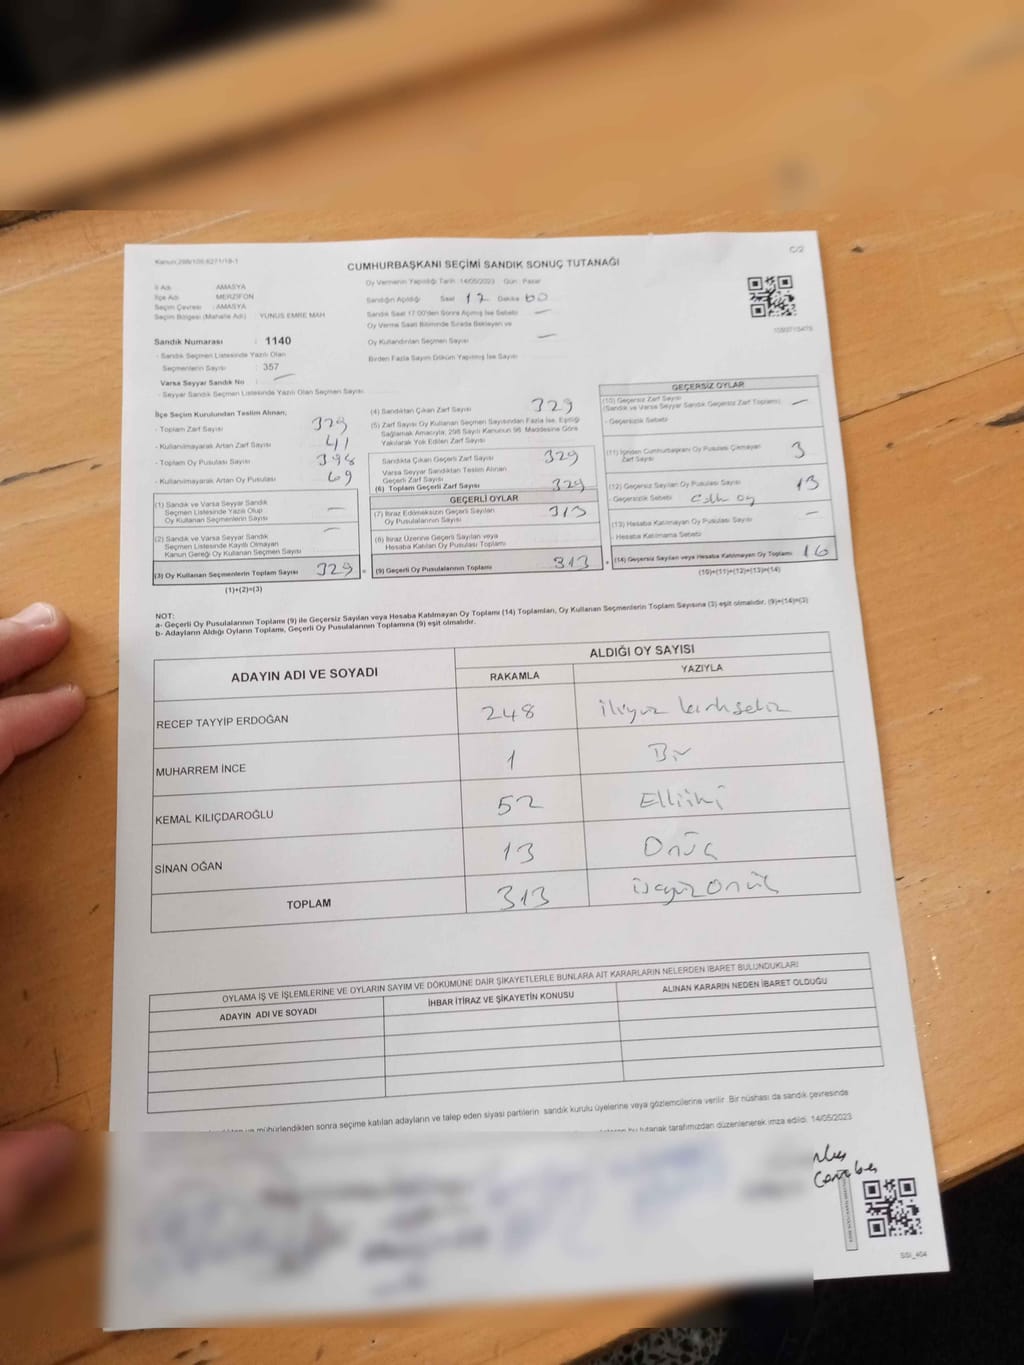 Kanun:298/105,6271/18-1
C/2
CUMHURBAŞKANI SEÇİMİ SANDIK SONUÇ TUTANAĞI
İl Adı : AMASYA
İlçe Adı : MERZİFON
Seçim Çevresi : AMASYA
Seçim Bölgesi (Mahalle Adı) : YUNUS EMRE MAH
Oy Vermenin Yapıldığı Tarih :14/05/2023 Gün : Pazar
Sandığın Açıldığı Saat 17 Dakika 00
Sandık Saat 17:00'den Sonra Açılmış İse Sebebi —
Oy Verme Saati Bitiminde Sırada Bekleyen ve
Oy Kullandırılan Seçmen Sayısı —
Birden Fazla Sayım Döküm Yapılmış İse Sayısı
Sandık Numarası : 1140
- Sandık Seçmen Listesinde Yazılı Olan
Seçmenlerin Sayısı : 357
Varsa Seyyar Sandık No : —
- Seyyar Sandık Seçmen Listesinde Yazılı Olan Seçmen Sayısı
İlçe Seçim Kurulundan Teslim Alınan;
- Toplam Zarf Sayısı
- Kullanılmayarak Artan Zarf Sayısı 41
- Toplam Oy Pusulası Sayısı 398
- Kullanılmayarak Artan Oy Pusulası 69
(1) Sandık ve Varsa Seyyar Sandık
Seçmen Listesinde Yazılı Olup
Oy Kullanan Seçmenlerin Sayısı —
(2) Sandık ve Varsa Seyyar Sandık
Seçmen Listesinde Kayıtlı Olmayan
Kanun Gereği Oy Kullanan Seçmen Sayısı —
(3) Oy Kullanan Seçmenlerin Toplam Sayısı 329
(1)+(2)=(3)
(4) Sandıktan Çıkan Zarf Sayısı 329
(5) Zarf Sayısı Oy Kullanan Seçmen Sayısından Fazla İse, Eşitliği
Sağlamak Amacıyla; 298 Sayılı Kanunun 98. Maddesine Göre
Yakılarak Yok Edilen Zarf Sayısı
Sandıkta Çıkan Geçerli Zarf Sayısı 329
Varsa Seyyar Sandıktan Teslim Alınan
Geçerli Zarf Sayısı
(6) Toplam Geçerli Zarf Sayısı 329
GEÇERLİ OYLAR
(7) İtiraz Edilmeksizin Geçerli Sayılan
Oy Pusulalarının Sayısı 313
(8) İtiraz Üzerine Geçerli Sayılan veya
Hesaba Katılan Oy Pusulası Toplamı
(9) Geçerli Oy Pusulalarının Toplamı 313
GEÇERSİZ OYLAR
(10) Geçersiz Zarf Sayısı
(Sandık ve Varsa Seyyar Sandık Geçersiz Zarf Toplamı) —
- Geçersizlik Sebebi
(11) İçinden Cumhurbaşkanı Oy Pusulası Çıkmayan
Zarf Sayısı 3
(12) Geçersiz Sayılan Oy Pusulası Sayısı 13
- Geçersizlik Sebebi oy
(13) Hesaba Katılmayan Oy Pusulası Sayısı —
- Hesaba Katılmama Sebebi
(14) Geçersiz Sayılan veya Hesaba Katılmayan Oy Toplamı 16
(10)+(11)+(12)+(13)=(14)
NOT:
a- Geçerli Oy Pusulalarının Toplamı (9) ile Geçersiz Sayılan veya Hesaba Katılmayan Oy Toplamı (14) Toplamları, Oy Kullanan Seçmenlerin Toplam Sayısına (3) eşit olmalıdır. (9)+(14)=(3)
b- Adayların Aldığı Oyların Toplamı, Geçerli Oy Pusulalarının Toplamına (9) eşit olmalıdır.
ADAYIN ADI VE SOYADI
ALDIĞI OY SAYISI
RAKAMLA YAZIYLA
RECEP TAYYİP ERDOĞAN 248 ikiyüz kırksekiz
MUHARREM İNCE 1 Bir
KEMAL KILIÇDAROĞLU 52 Elliiki
SİNAN OĞAN 13 Onüç
TOPLAM 313 üçyüzonüç
OYLAMA İŞ VE İŞLEMLERİNE VE OYLARIN SAYIM VE DÖKÜMÜNE DAİR ŞİKAYETLERLE BUNLARA AİT KARARLARIN NELERDEN İBARET BULUNDUKLARI
ADAYIN ADI VE SOYADI İHBAR İTİRAZ VE ŞİKAYETİN KONUSU ALINAN KARARIN NEDEN İBARET OLDUĞU
mühürlendikten sonra seçime katılan adayların ve talep eden siyasi partilerin sandık kurulu üyelerine veya gözlemcilerine verilir. Bir nüshası da sandık çevresinde
bu tutanak tarafımızdan düzenlenerek imza edildi. 14/05/2023
SSI_404